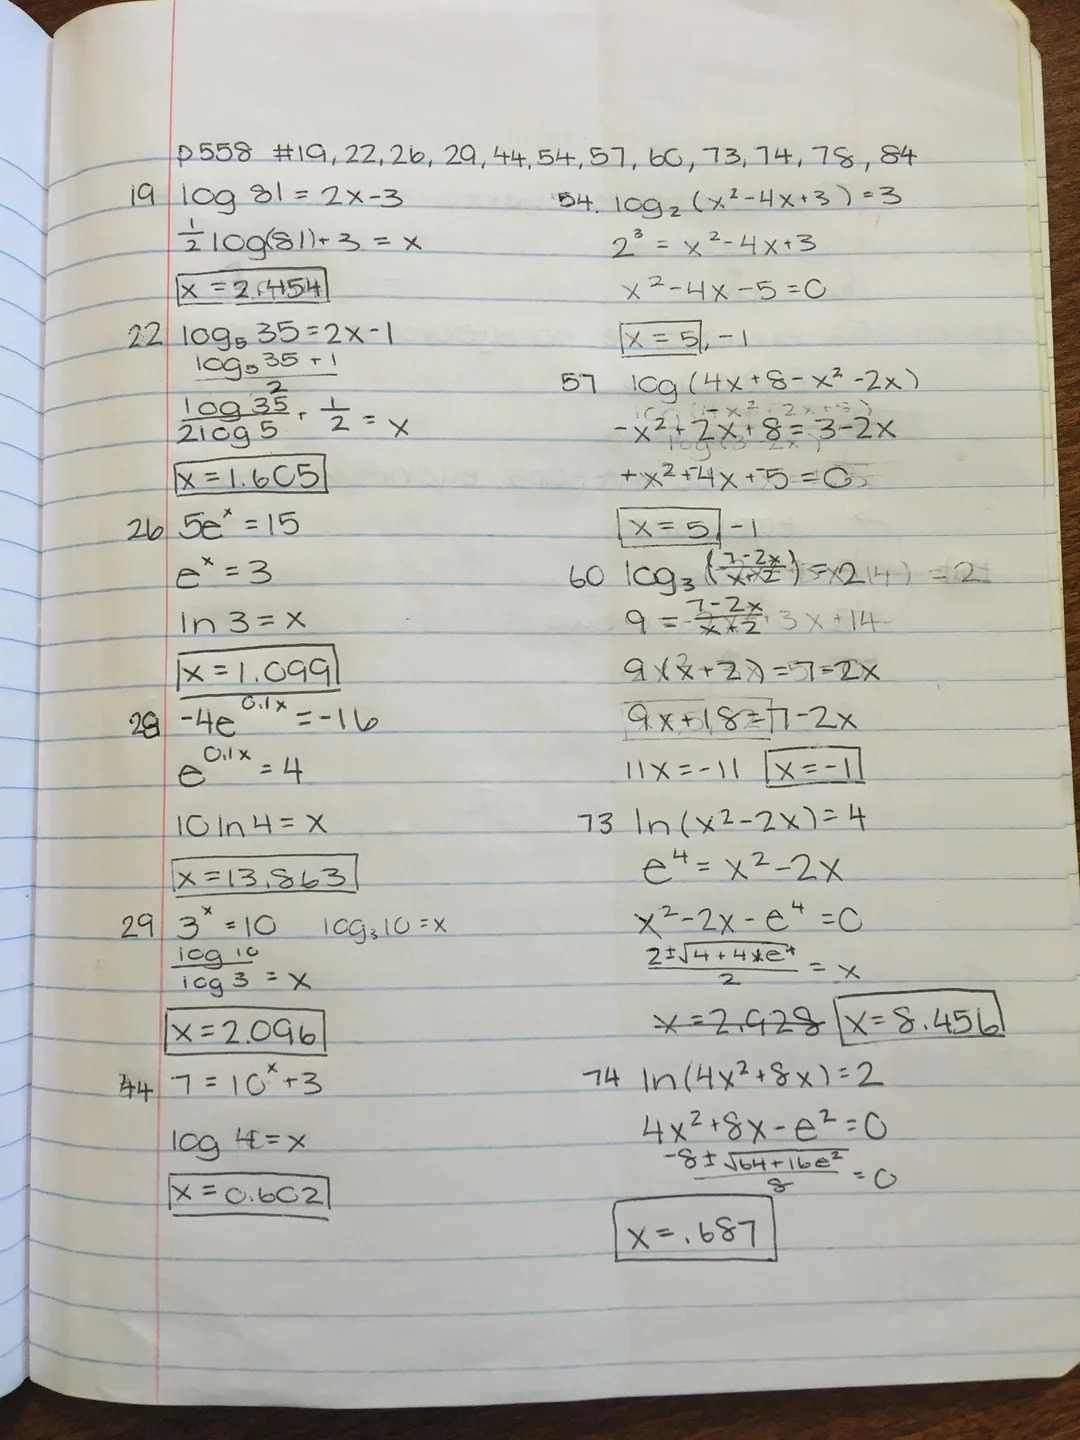 p558 #19, 22, 26, 29, 44, 54, 57, 60, 73, 74, 78, 84
19 log 81 = 2x-3
½ log(81)+3 = x
x = 2.454
22 log₅ 35 = 2x-1
log₅ 35 + 1
2
log 35 + 1/2 = x
2log 5
x = 1.605
26 5eˣ = 15
eˣ = 3
ln 3 = x
x = 1.099
28 -4e^0.1x = -16
e^0.1x = 4
10 ln 4 = x
x = 13.863
29 3ˣ = 10 log₃ 10 = x
log 10
log 3 = x
x = 2.096
44 7 = 10ˣ + 3
log 4 = x
x = 0.602
54. log₂ (x²-4x+3) = 3
2³ = x²-4x+3
x²-4x-5 = 0
x = 5, -1
57 log (4x+8-x²-2x)
-x²+2x+8 = 3-2x
+x²-4x-5 = 0
x = 5, -1
60 log₃ (7-2x/x+2) = 2
9 = 7-2x/x+2
9(x+2) = 7-2x
9x+18 = 7-2x
11x = -11 x = -1
73 ln(x²-2x) = 4
e⁴ = x²-2x
x²-2x-e⁴ = 0
2±√4+4e⁴
2 = x
x = 2.928 x = 8.456
74 ln(4x²+8x) = 2
4x²+8x-e² = 0
-8±√64+16e²
8 = 0
x = .687